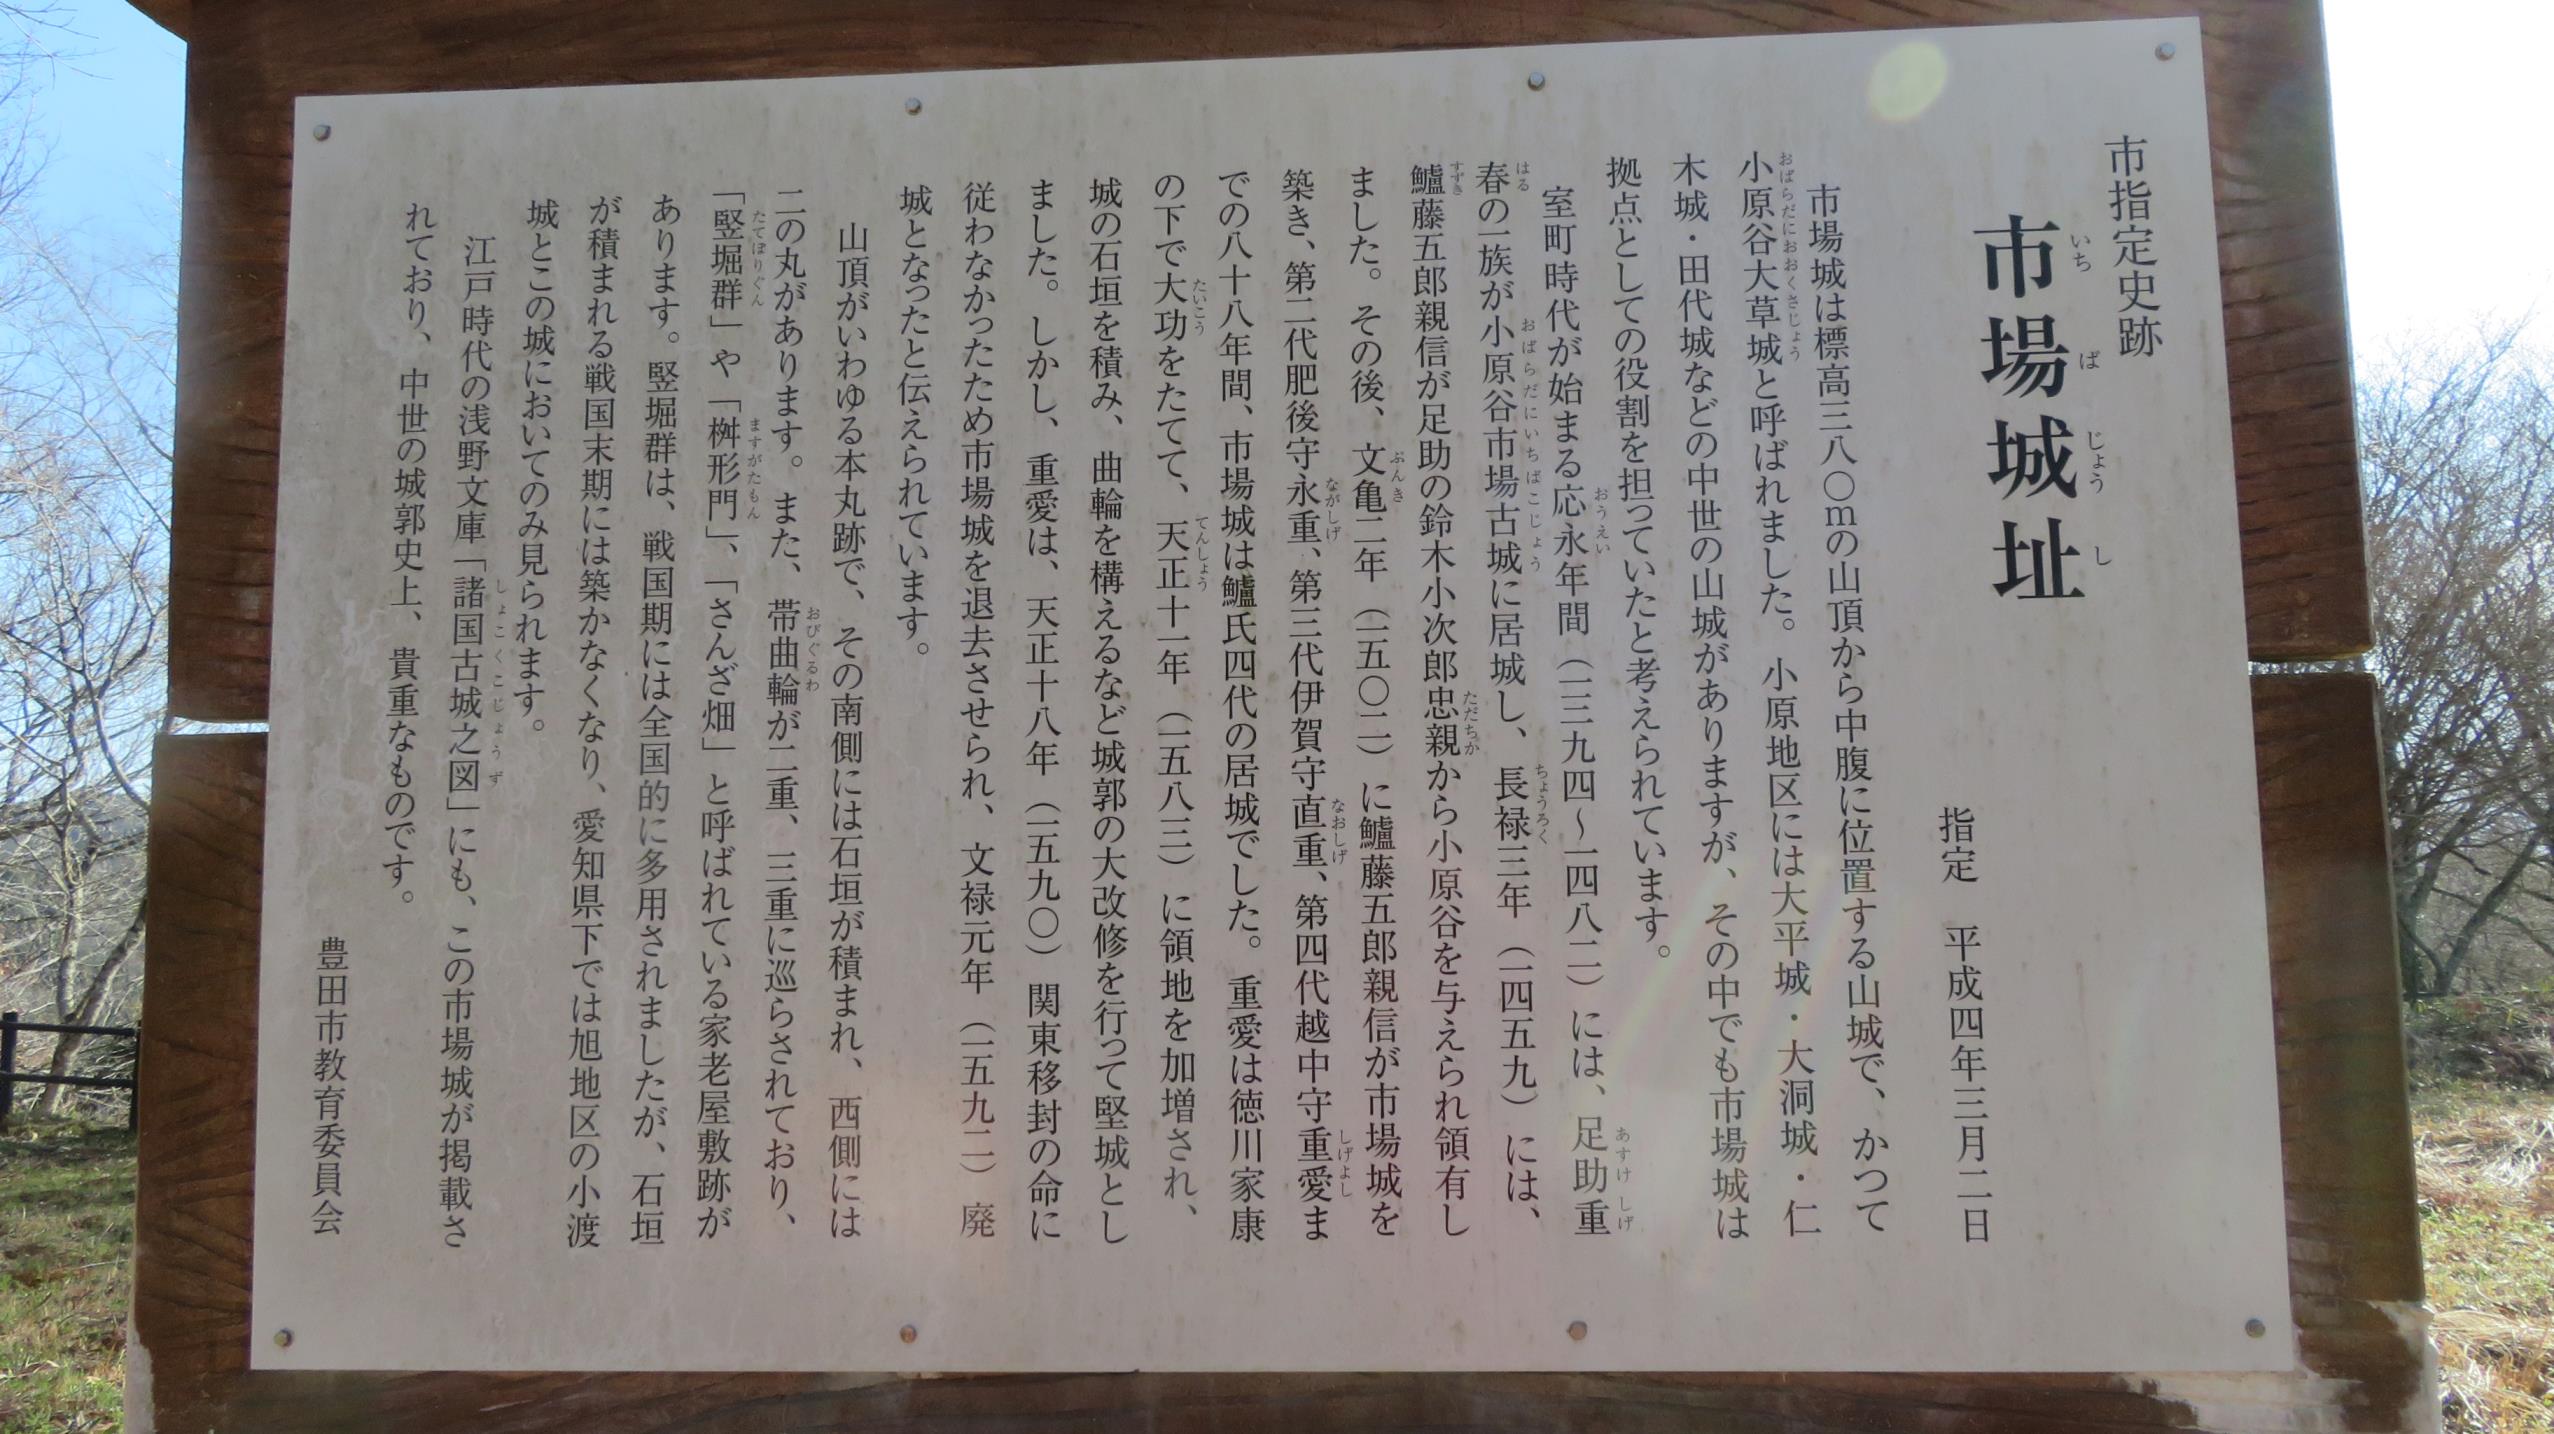 市指定史跡
市場城址
いちばじょうし
指定　平成四年三月二日
市場城は標高三八〇mの山頂から中腹に位置する山城で、かつて
小原谷大草城と呼ばれました。小原地区には大平城・大洞城・仁
おばらだにおおくさじょう
木城・田代城などの中世の山城がありますが、その中でも市場城は
拠点としての役割を担っていたと考えられています。
室町時代が始まる応永年間（一三九四〜一四八二）には、足助重
おうえい　あすけしげ
春の一族が小原谷市場古城に居城し、長禄三年（一四五九）には、
はる　おばらだにいちばこじょう　ちょうろく
鱸藤五郎親信が足助の鈴木小次郎忠親から小原谷を与えられ領有し
すずき　ただちか
ました。その後、文亀二年（一五〇二）に鱸藤五郎親信が市場城を
ぶんき
築き、第二代肥後守永重、第三代伊賀守直重、第四代越中守重愛ま
ながしげ　なおしげ　しげよし
での八十八年間、市場城は鱸氏四代の居城でした。重愛は徳川家康
の下で大功をたてて、天正十一年（一五八三）に領地を加増され、
たいこう　てんしょう
城の石垣を積み、曲輪を構えるなど城郭の大改修を行って堅城とし
ました。しかし、重愛は、天正十八年（一五九〇）関東移封の命に
従わなかったため市場城を退去させられ、文禄元年（一五九二）廃
城となったと伝えられています。
山頂がいわゆる本丸跡で、その南側には石垣が積まれ、西側には
二の丸があります。また、帯曲輪が二重、三重に巡らされており、
おびぐるわ
「竪堀群」や「桝形門」、「さんざ畑」と呼ばれている家老屋敷跡が
たてぼりぐん　ますがたもん
あります。竪堀群は、戦国期には全国的に多用されましたが、石垣
が積まれる戦国末期には築かなくなり、愛知県下では旭地区の小渡
城とこの城においてのみ見られます。
江戸時代の浅野文庫「諸国古城之図」にも、この市場城が掲載さ
しょこくこじょうず
れており、中世の城郭史上、貴重なものです。
豊田市教育委員会